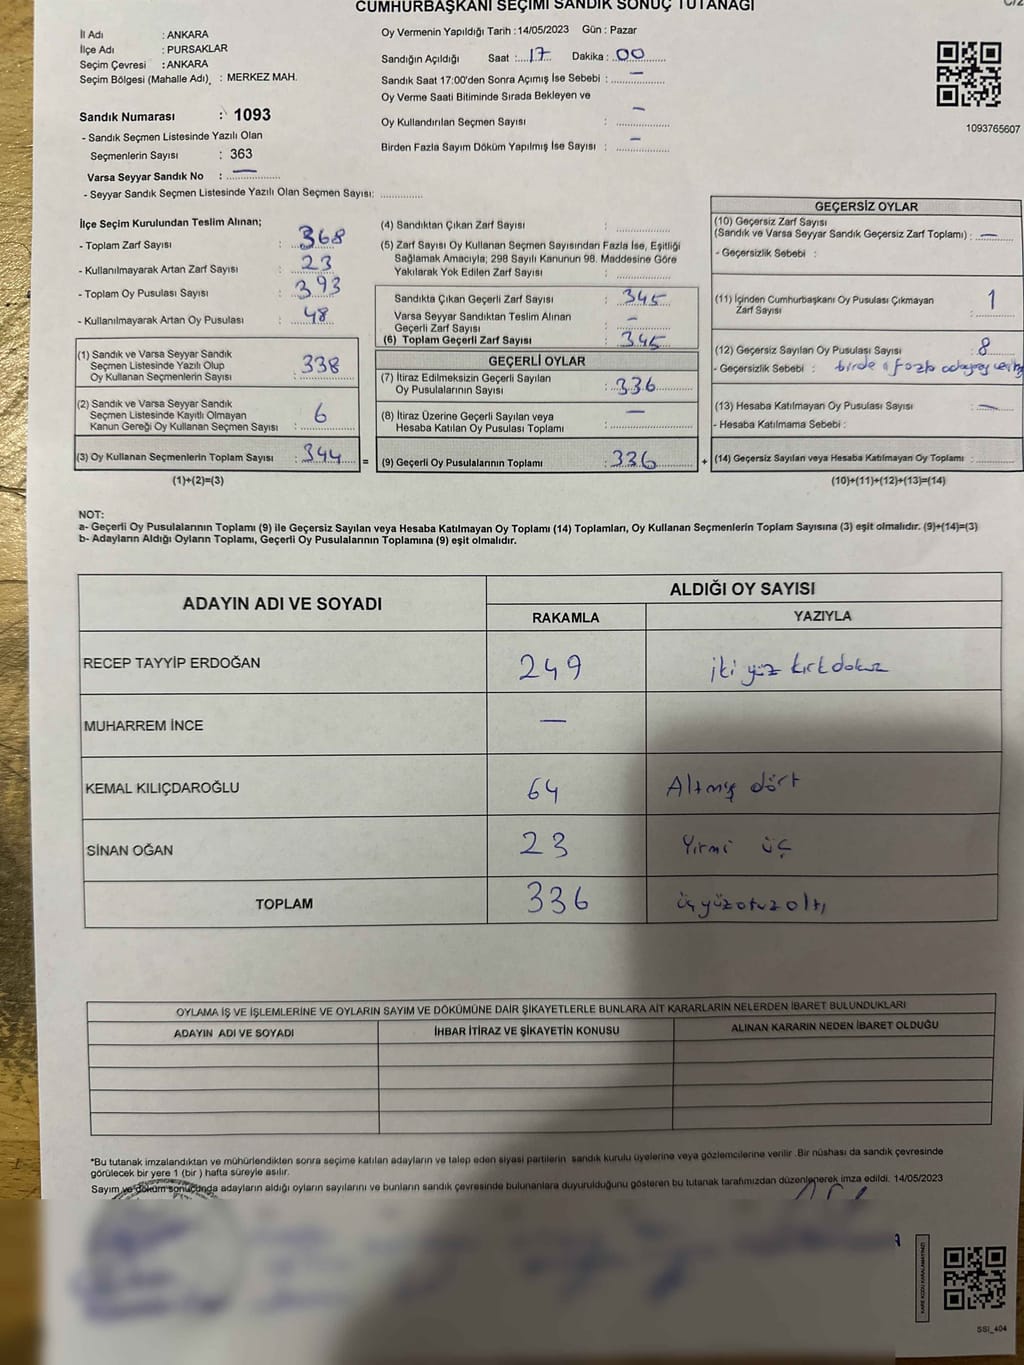 CUMHURBAŞKANI SEÇİMİ SANDIK SONUÇ TUTANAĞI
İl Adı : ANKARA
İlçe Adı : PURSAKLAR
Seçim Çevresi : ANKARA
Seçim Bölgesi (Mahalle Adı) : MERKEZ MAH.
Sandık Numarası : 1093
- Sandık Seçmen Listesinde Yazılı Olan
Seçmenlerin Sayısı : 363
Varsa Seyyar Sandık No : —
- Seyyar Sandık Seçmen Listesinde Yazılı Olan Seçmen Sayısı: ..........
Oy Vermenin Yapıldığı Tarih : 14/05/2023 Gün : Pazar
Sandığın Açıldığı Saat : 17 Dakika : 00
Sandık Saat 17:00'den Sonra Açımış İse Sebebi : —
Oy Verme Saati Bitiminde Sırada Bekleyen ve
Oy Kullandırılan Seçmen Sayısı : —
Birden Fazla Sayım Döküm Yapılmış İse Sayısı : —
1093765607
İlçe Seçim Kurulundan Teslim Alınan;
- Toplam Zarf Sayısı : 368
- Kullanılmayarak Artan Zarf Sayısı : 23
- Toplam Oy Pusulası Sayısı : 393
- Kullanılmayarak Artan Oy Pusulası : 48
(1) Sandık ve Varsa Seyyar Sandık
Seçmen Listesinde Yazılı Olup
Oy Kullanan Seçmenlerin Sayısı : 338
(2) Sandık ve Varsa Seyyar Sandık
Seçmen Listesinde Kayıtlı Olmayan
Kanun Gereği Oy Kullanan Seçmen Sayısı : 6
(3) Oy Kullanan Seçmenlerin Toplam Sayısı : 344 =
(1)+(2)=(3)
(4) Sandıktan Çıkan Zarf Sayısı :
(5) Zarf Sayısı Oy Kullanan Seçmen Sayısından Fazla İse, Eşitliği
Sağlamak Amacıyla; 298 Sayılı Kanunun 98. Maddesine Göre
Yakılarak Yok Edilen Zarf Sayısı :
Sandıkta Çıkan Geçerli Zarf Sayısı : 345
Varsa Seyyar Sandıktan Teslim Alınan
Geçerli Zarf Sayısı : —
(6) Toplam Geçerli Zarf Sayısı : 345
GEÇERLİ OYLAR
(7) İtiraz Edilmeksizin Geçerli Sayılan
Oy Pusulalarının Sayısı : 336
(8) İtiraz Üzerine Geçerli Sayılan veya
Hesaba Katılan Oy Pusulası Toplamı : —
(9) Geçerli Oy Pusulalarının Toplamı : 336 +
GEÇERSİZ OYLAR
(10) Geçersiz Zarf Sayısı
(Sandık ve Varsa Seyyar Sandık Geçersiz Zarf Toplamı) : —
- Geçersizlik Sebebi :
(11) İçinden Cumhurbaşkanı Oy Pusulası Çıkmayan
Zarf Sayısı : 1
(12) Geçersiz Sayılan Oy Pusulası Sayısı : 8
- Geçersizlik Sebebi : birden fazla adaya
(13) Hesaba Katılmayan Oy Pusulası Sayısı : —
- Hesaba Katılmama Sebebi :
(14) Geçersiz Sayılan veya Hesaba Katılmayan Oy Toplamı :
(10)+(11)+(12)+(13)=(14)
NOT:
a- Geçerli Oy Pusulalarının Toplamı (9) ile Geçersiz Sayılan veya Hesaba Katılmayan Oy Toplamı (14) Toplamları, Oy Kullanan Seçmenlerin Toplam Sayısına (3) eşit olmalıdır. (9)+(14)=(3)
b- Adayların Aldığı Oyların Toplamı, Geçerli Oy Pusulalarının Toplamına (9) eşit olmalıdır.
ADAYIN ADI VE SOYADI ALDIĞI OY SAYISI
RAKAMLA YAZIYLA
RECEP TAYYİP ERDOĞAN 249 iki yüz kırk dokuz
MUHARREM İNCE —
KEMAL KILIÇDAROĞLU 64 Altmış dört
SİNAN OĞAN 23 Yirmi üç
TOPLAM 336 üçyüzotuzaltı
OYLAMA İŞ VE İŞLEMLERİNE VE OYLARIN SAYIM VE DÖKÜMÜNE DAİR ŞİKAYETLERLE BUNLARA AİT KARARLARIN NELERDEN İBARET BULUNDUKLARI
ADAYIN ADI VE SOYADI İHBAR İTİRAZ VE ŞİKAYETİN KONUSU ALINAN KARARIN NEDEN İBARET OLDUĞU
*Bu tutanak imzalandıktan ve mühürlendikten sonra seçime katılan adayların ve talep eden siyasi partilerin sandık kurulu üyelerine veya gözlemcilerine verilir .Bir nüshası da sandık çevresinde
görülecek bir yere 1 (bir ) hafta süreyle asılır.
Sayım ve döküm sonucunda adayların aldığı oyların sayılarını ve bunların sandık çevresinde bulunanlara duyurulduğunu gösteren bu tutanak tarafımızdan düzenlenerek imza edildi. 14/05/2023
KARE KODU KARALAMAYINIZ!
SSI_404